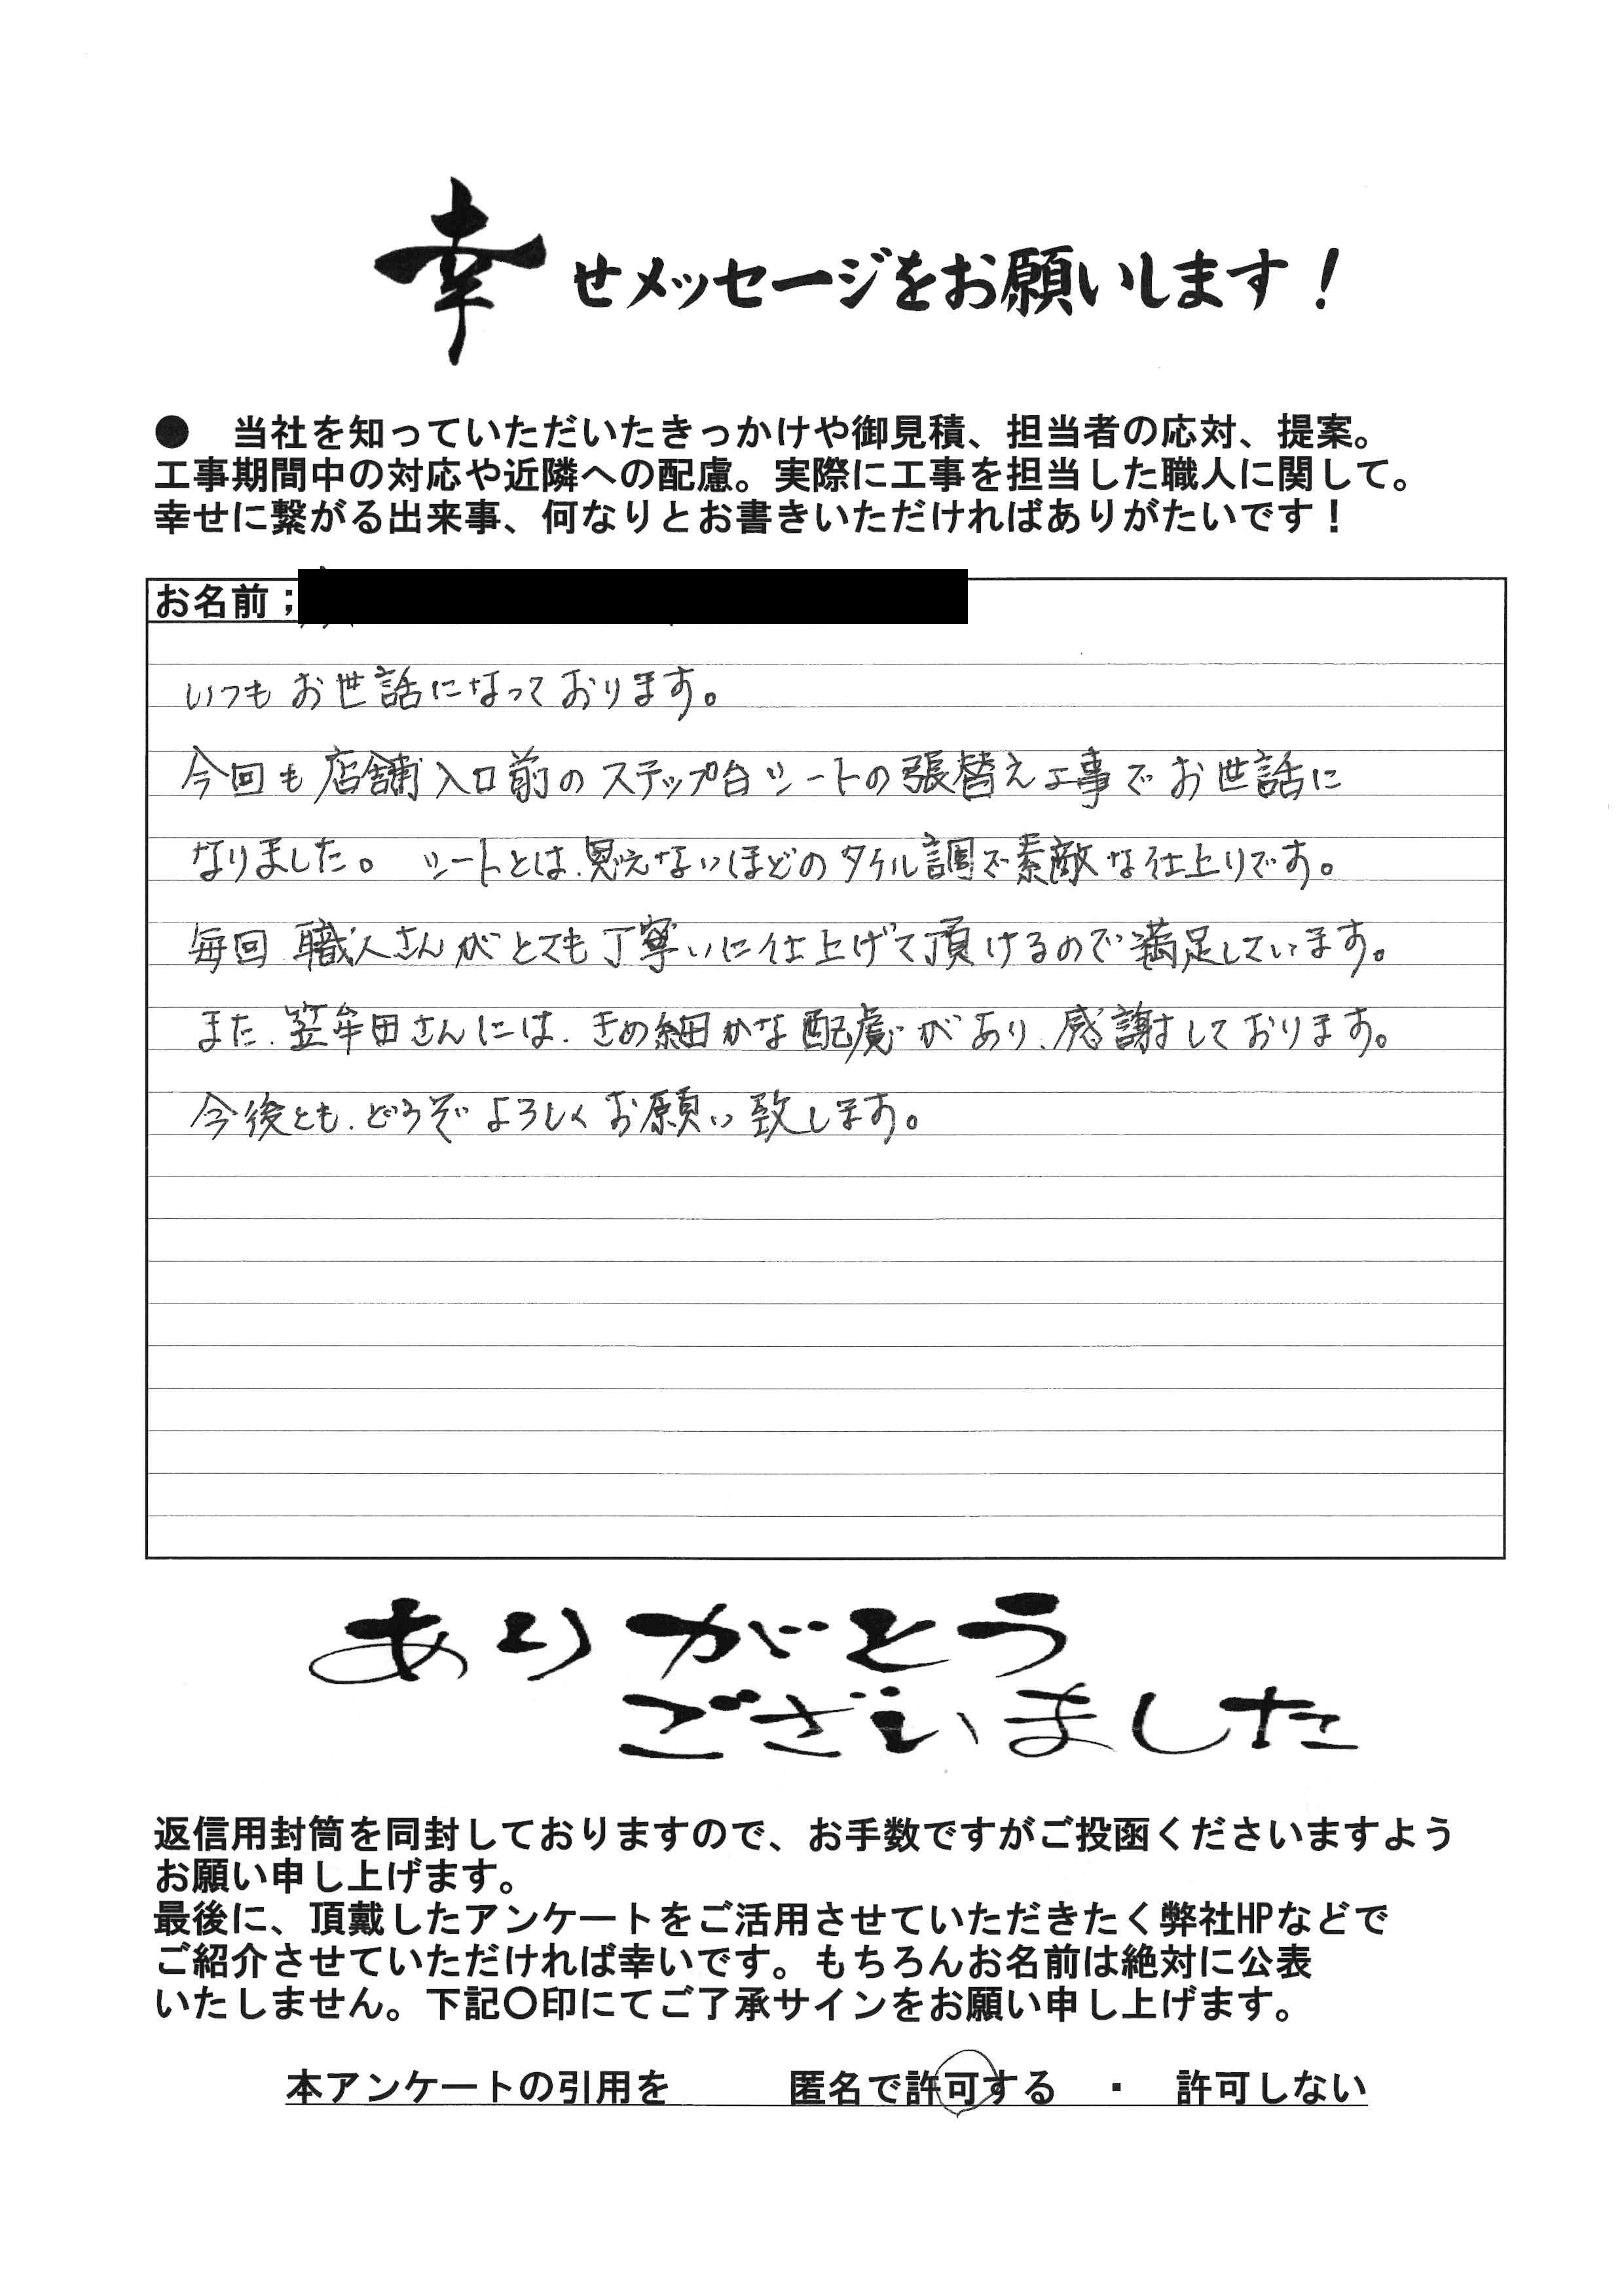 幸せメッセージをお願いします！
● 当社を知っていただいたきっかけや御見積、担当者の応対、提案。
工事期間中の対応や近隣への配慮。実際に工事を担当した職人に関して。
幸せに繋がる出来事、何なりとお書きいただければありがたいです！
お名前；
いつもお世話になっております。
今回も店舗入口前のステップ台シートの張替え工事でお世話に
なりました。 シートとは、見えないほどのタイル調で素敵な仕上りです。
毎回職人さんがとても丁寧いに仕上げて頂けるので満足しています。
また、笠牟田さんには、きめ細かな配慮があり、感謝しております。
今後とも、どうぞよろしくお願い致します。
ありがとう
ございました
返信用封筒を同封しておりますので、お手数ですがご投函くださいますよう
お願い申し上げます。
最後に、頂戴したアンケートをご活用させていただきたく弊社HPなどで
ご紹介させていただければ幸いです。もちろんお名前は絶対に公表
いたしません。下記〇印にてご了承サインをお願い申し上げます。
本アンケートの引用を 匿名で許可する ・ 許可しない